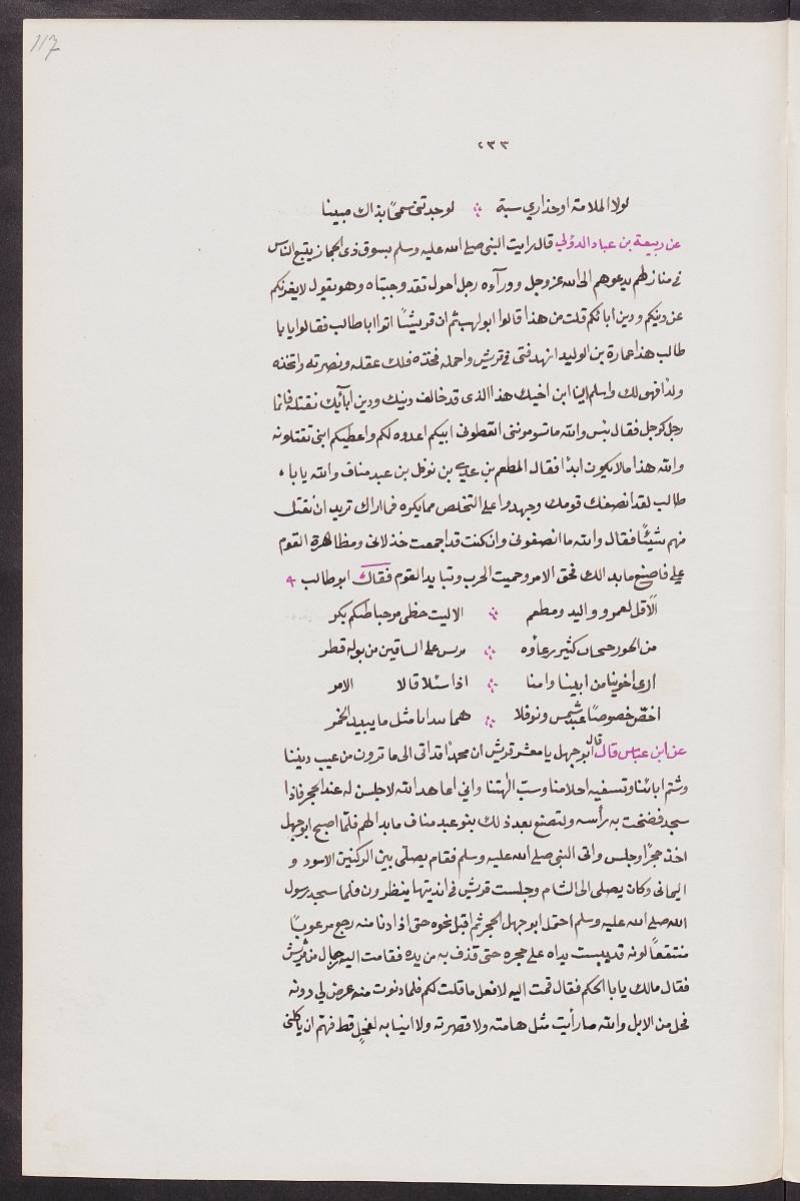 117
٢٣٣
لولا الملامة او حذاري سبة ؞ لوجدتني سمحًا بذاك مبينا
عن ربيعة بن عباد الدؤلي قال رايت النبي صلى الله عليه وسلم بسوق ذى المجاز يتبع الناس
في منازلهم يدعوهم الى الله عز وجل ووراءه رجل احول تقد وجنتاه وهو يقول لا يغرنكم
عن دينكم ودين ابائكم قلت من هذا قالوا ابو لهب ثم ان قريشًا اتوا ابا طالب فقالوا يا با
طالب هذا عمارة بن الوليد انهد فتى في قريش واجمله فخذه فلك عقله ونصرته واتخذه
ولدًا فهو لك واسلم الينا ابن اخيك هذا الذى قد خالف دينك ودين آبائك نقتله فانما
رجل كرجل فقال بئس والله ما تسومونني اتعطوني ابنكم اغدوه لكم واعطيكم ابنى تقتلونه
والله هذا ما لا يكون ابدًا فقال المطعم بن عدي بن نوفل بن عبد مناف والله يا با
طالب لقد انصفك قومك وجهدوا على التخلص مما يكره فما اراك تريد ان تقبل
منهم شيئًا فقال والله ما انصفونى وان كنت قد اجمعت خذلانى ومظاهرة القوم
علي فاصنع ما بدا لك فحق الامر وحميت الحرب وتبايد القوم فقال ابو طالب
الا قل لعمرو والوليد ومطعم ؞ الا ليت حظى من حياطتكم بكر
من الخور حبحاب كثير رغاؤه ؞ يرش على الساقين من بوله قطر
ارى اخوينا من ابينا وامنا ؞ اذا سئلا قالا الامر
اخص خصوصًا عبد شمس ونوفلا ؞ هما نبذانا مثل ما ينبذ الخمر
عن ابن عباس قال قال ابو جهل يا معشر قريش ان محمدًا قد اتى الى ما ترون من عيب ديننا
وشتم ابائنا وتسفيه احلامنا وسب الهتنا وانى اعاهد الله لاجلسن له غدا بحجر فاذا
سجد فضخت به رأسه وليصنع بعد ذلك بنو عبد مناف ما بدا لهم فلما اصبح ابو جهل
اخذ حجرًا وجلس واتى النبي صلى الله عليه وسلم فقام يصلى بين الركنين الاسود و
اليمانى وكان يصلى الى الشام وجلست قريش في انديتها ينظرون فلما سجد رسول
الله صلى الله عليه وسلم احتمل ابو جهل الحجر ثم اقبل نحوه حتى اذا دنا منه رجع مرعوبًا
منتقعًا لونه قد يبست يداه على حجره حتى قذف به من يده فقامت اليه رجال من قريش
فقال مالك يا با الحكم فقال قمت اليه لافعل ما قلت لكم فلما دنوت منه عرض لي دونه
فحل من الابل والله ما رأيت مثل هامته ولا قصرته ولا انيابه لفحل قط فهم ان يأكلنى